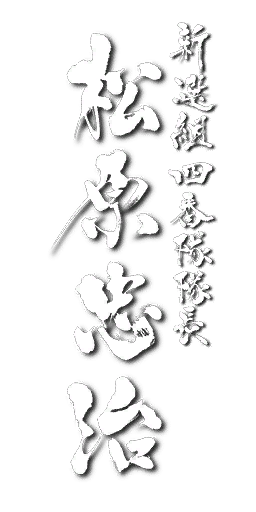 新選組四番隊隊長
松原忠治